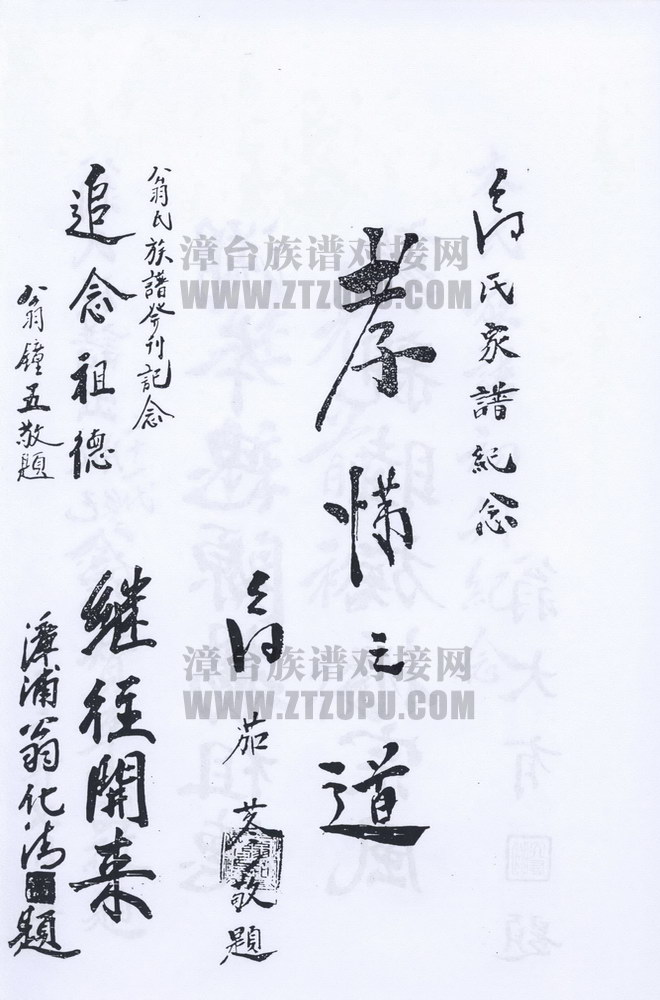 翁氏家譜紀念
孝悌之道
翁茄芝敬題
翁氏族譜發刊記念
追念祖德
翁鐘五敬題
继往開来
漳浦翁化清題
漳台族谱对接网
WWW.ZTZUPU.COM
漳台族谱对接网
WWW.ZTZUPU.COM
翁大有
題